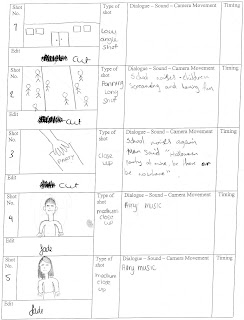 Shot No. Type of shot Dialogue – Sound – Camera Movement Timing
1 Low angle shot
Edit
Cut
Shot No. Type of shot Dialogue – Sound – Camera Movement Timing
2 Panning long shot School noises - children screaming and having fun
Edit
Cut
Shot No. Type of shot Dialogue – Sound – Camera Movement Timing
3 close up School noises again
Edit
Cut
Shot No. Type of shot Dialogue – Sound – Camera Movement Timing
4 medium close up Airy music
Edit
fade
Shot No. Type of shot Dialogue – Sound – Camera Movement Timing
5 medium close up Airy music
Edit
fade